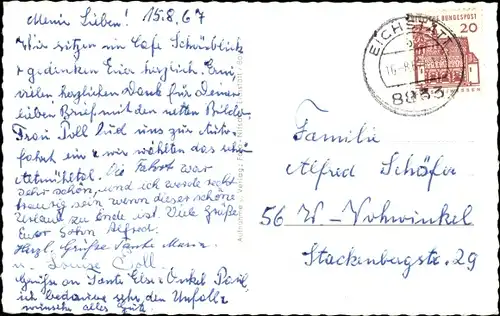 Meine Lieben! 15.8.67
Wir sitzen im Cafe Schönblick
+ gedenken Euer herzlich. Erni,
vielen herzlichen Dank für Deinen
lieben Brief mit den netten Bildern
Frau Poll lud uns zur Auto-
fahrt ein + wir wählten das schöne
Altmühltal. Die Fahrt war
sehr schön, und ich werde recht
traurig sein, wenn dieser schöne
Urlaub zu Ende ist. Viele Grüße
Euer Sohn Alfred.
Herzl. Grüße Tante Maria
u. Louise
Grüße an Tante Else + Onkel
ich bedaure sehr den Unfall +
wünsche alles Gute
Aufnahme u. Verlag:
EICHSTÄTT
8833
BUNDESPOST
20
Familie
Alfred Schäfer
56 W-Vohwinkel
Stackenbergstr. 29